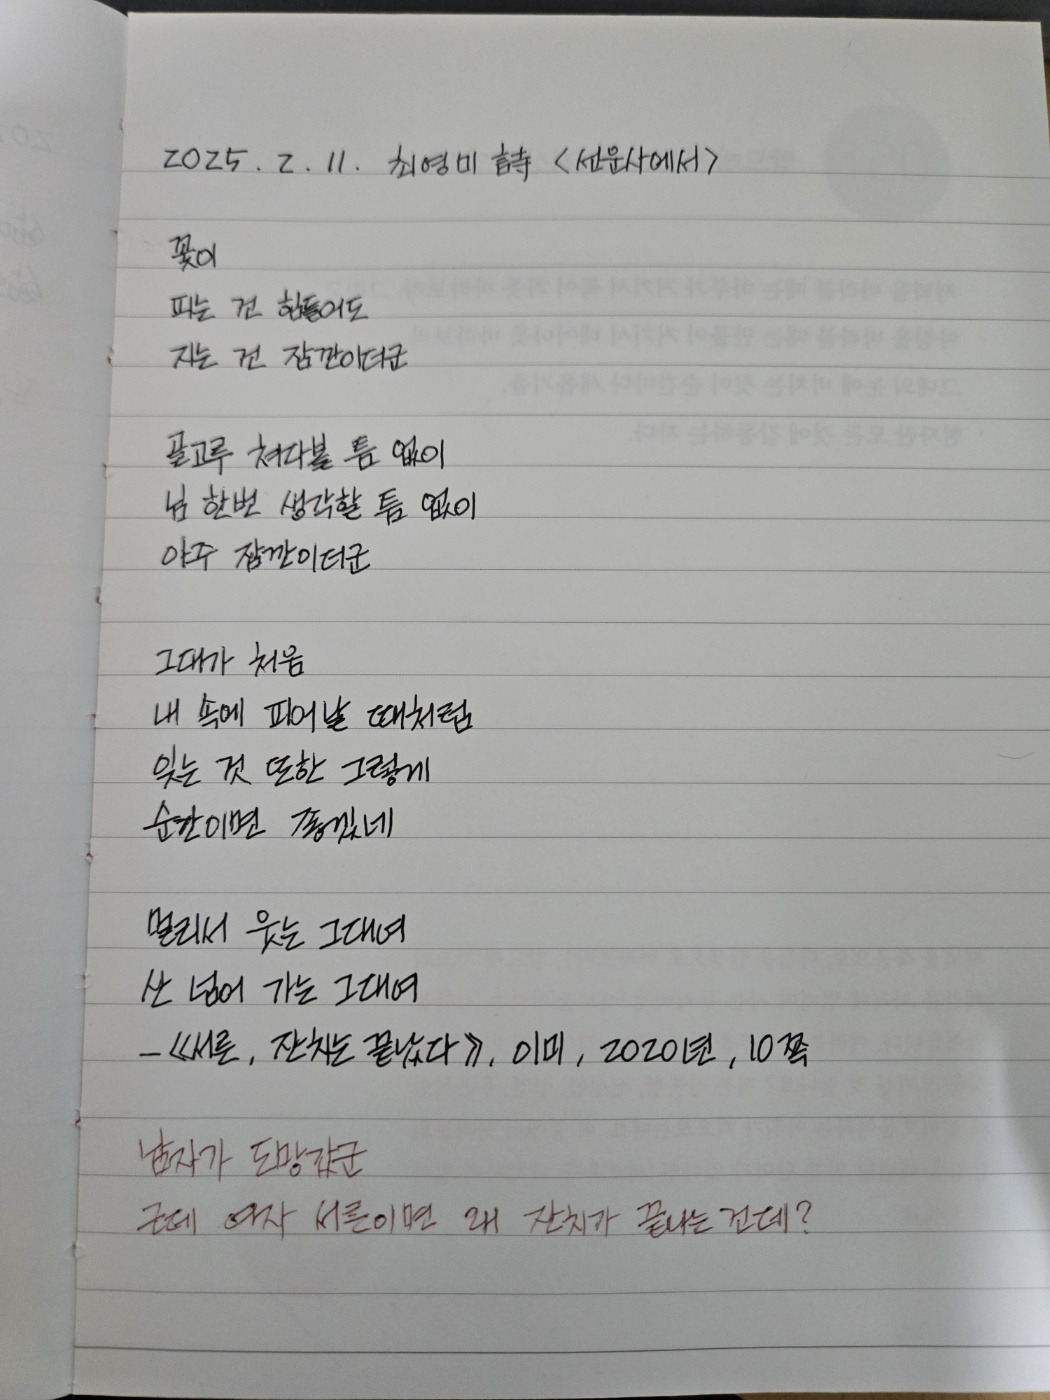 2025. 2. 11. 최영미 詩 <선운사에서>
꽃이
피는 건 힘들어도
지는 건 잠깐이더군
골고루 쳐다볼 틈 없이
님 한번 생각할 틈 없이
아주 잠깐이더군
그대가 처음
내 속에 피어날 때처럼
잊는 것 또한 그렇게
순간이면 좋겠네
멀리서 웃는 그대여
산 넘어 가는 그대여
-《서른, 잔치는 끝났다》, 이미, 2020년, 10쪽
남자가 도망갔군
근데 여자 서른이면 왜 잔치가 끝나는건데?